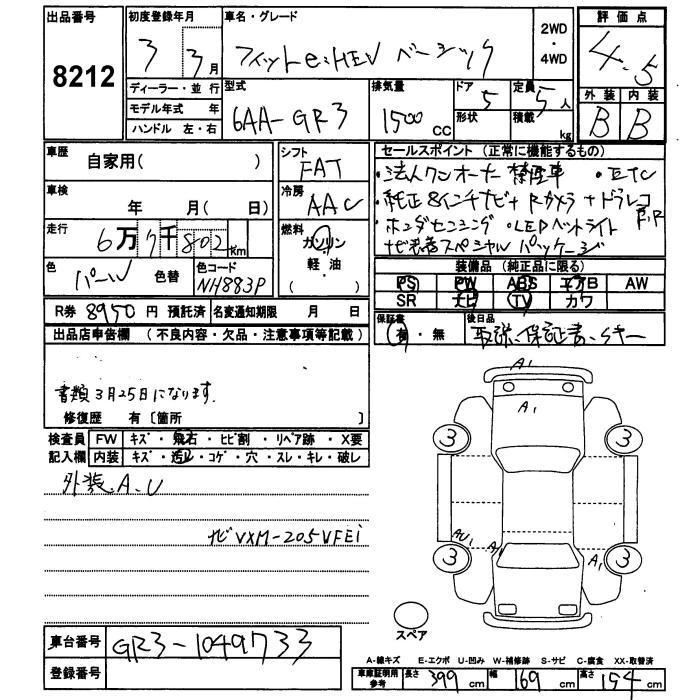 出品番号
8212
初度登録年月
3 3月
車名・グレード
フィットe:HEV ベーシック
2WD
・
4WD
評価点
4.5
外装 内装
B B
ディーラー・並行
モデル年式 年
ハンドル 左・右
型式
6AA-GR3
排気量
1500cc
ドア 5
形状
定員 5人
積載 kg
車歴
自家用( )
シフト
FAT
車検
年 月( 日)
冷房
AAC
走行
6万7千802km
燃料
ガソリン
軽・油
色
パール
色替
色コード
NH883P
R券 8950円 預託済
名変通知期限 月 日
セールスポイント (正常に機能するもの)
・法人ワンオーナー 禁煙車 ・ETC
・純正8インチナビ+Rカメラ+ドラレコ
F,R
・ホンダセンシング ・LEDヘッドライト
ナビ装着スペシャルパッケージ
装備品 (純正品に限る)
PS PW ABS エアB AW
SR ナビ TV カワ
保証書
有・無
後日品
取説、保証書、Sキー
出品店申告欄 (不良内容・欠品・注意事項等記載)
書類3月25日になります.
修復歴 有〔箇所 〕
検査員 FW キズ・飛石・ヒビ割・リペア跡・X要
記入欄 内装 キズ・汚レ・コゲ・穴・スレ・キレ・破レ
外装A.U
ナビVXM-205VFEi
A1
A1
3 3
AU1 A1
3 A1 3
スペア
車台番号
GR3-1049733
登録番号
A-線キズ E-エクボ U-凹み W-補修跡 S-サビ C-腐食 XX-取替済
車庫証明用
参考
長さ 399cm 幅 169cm 高さ 154cm